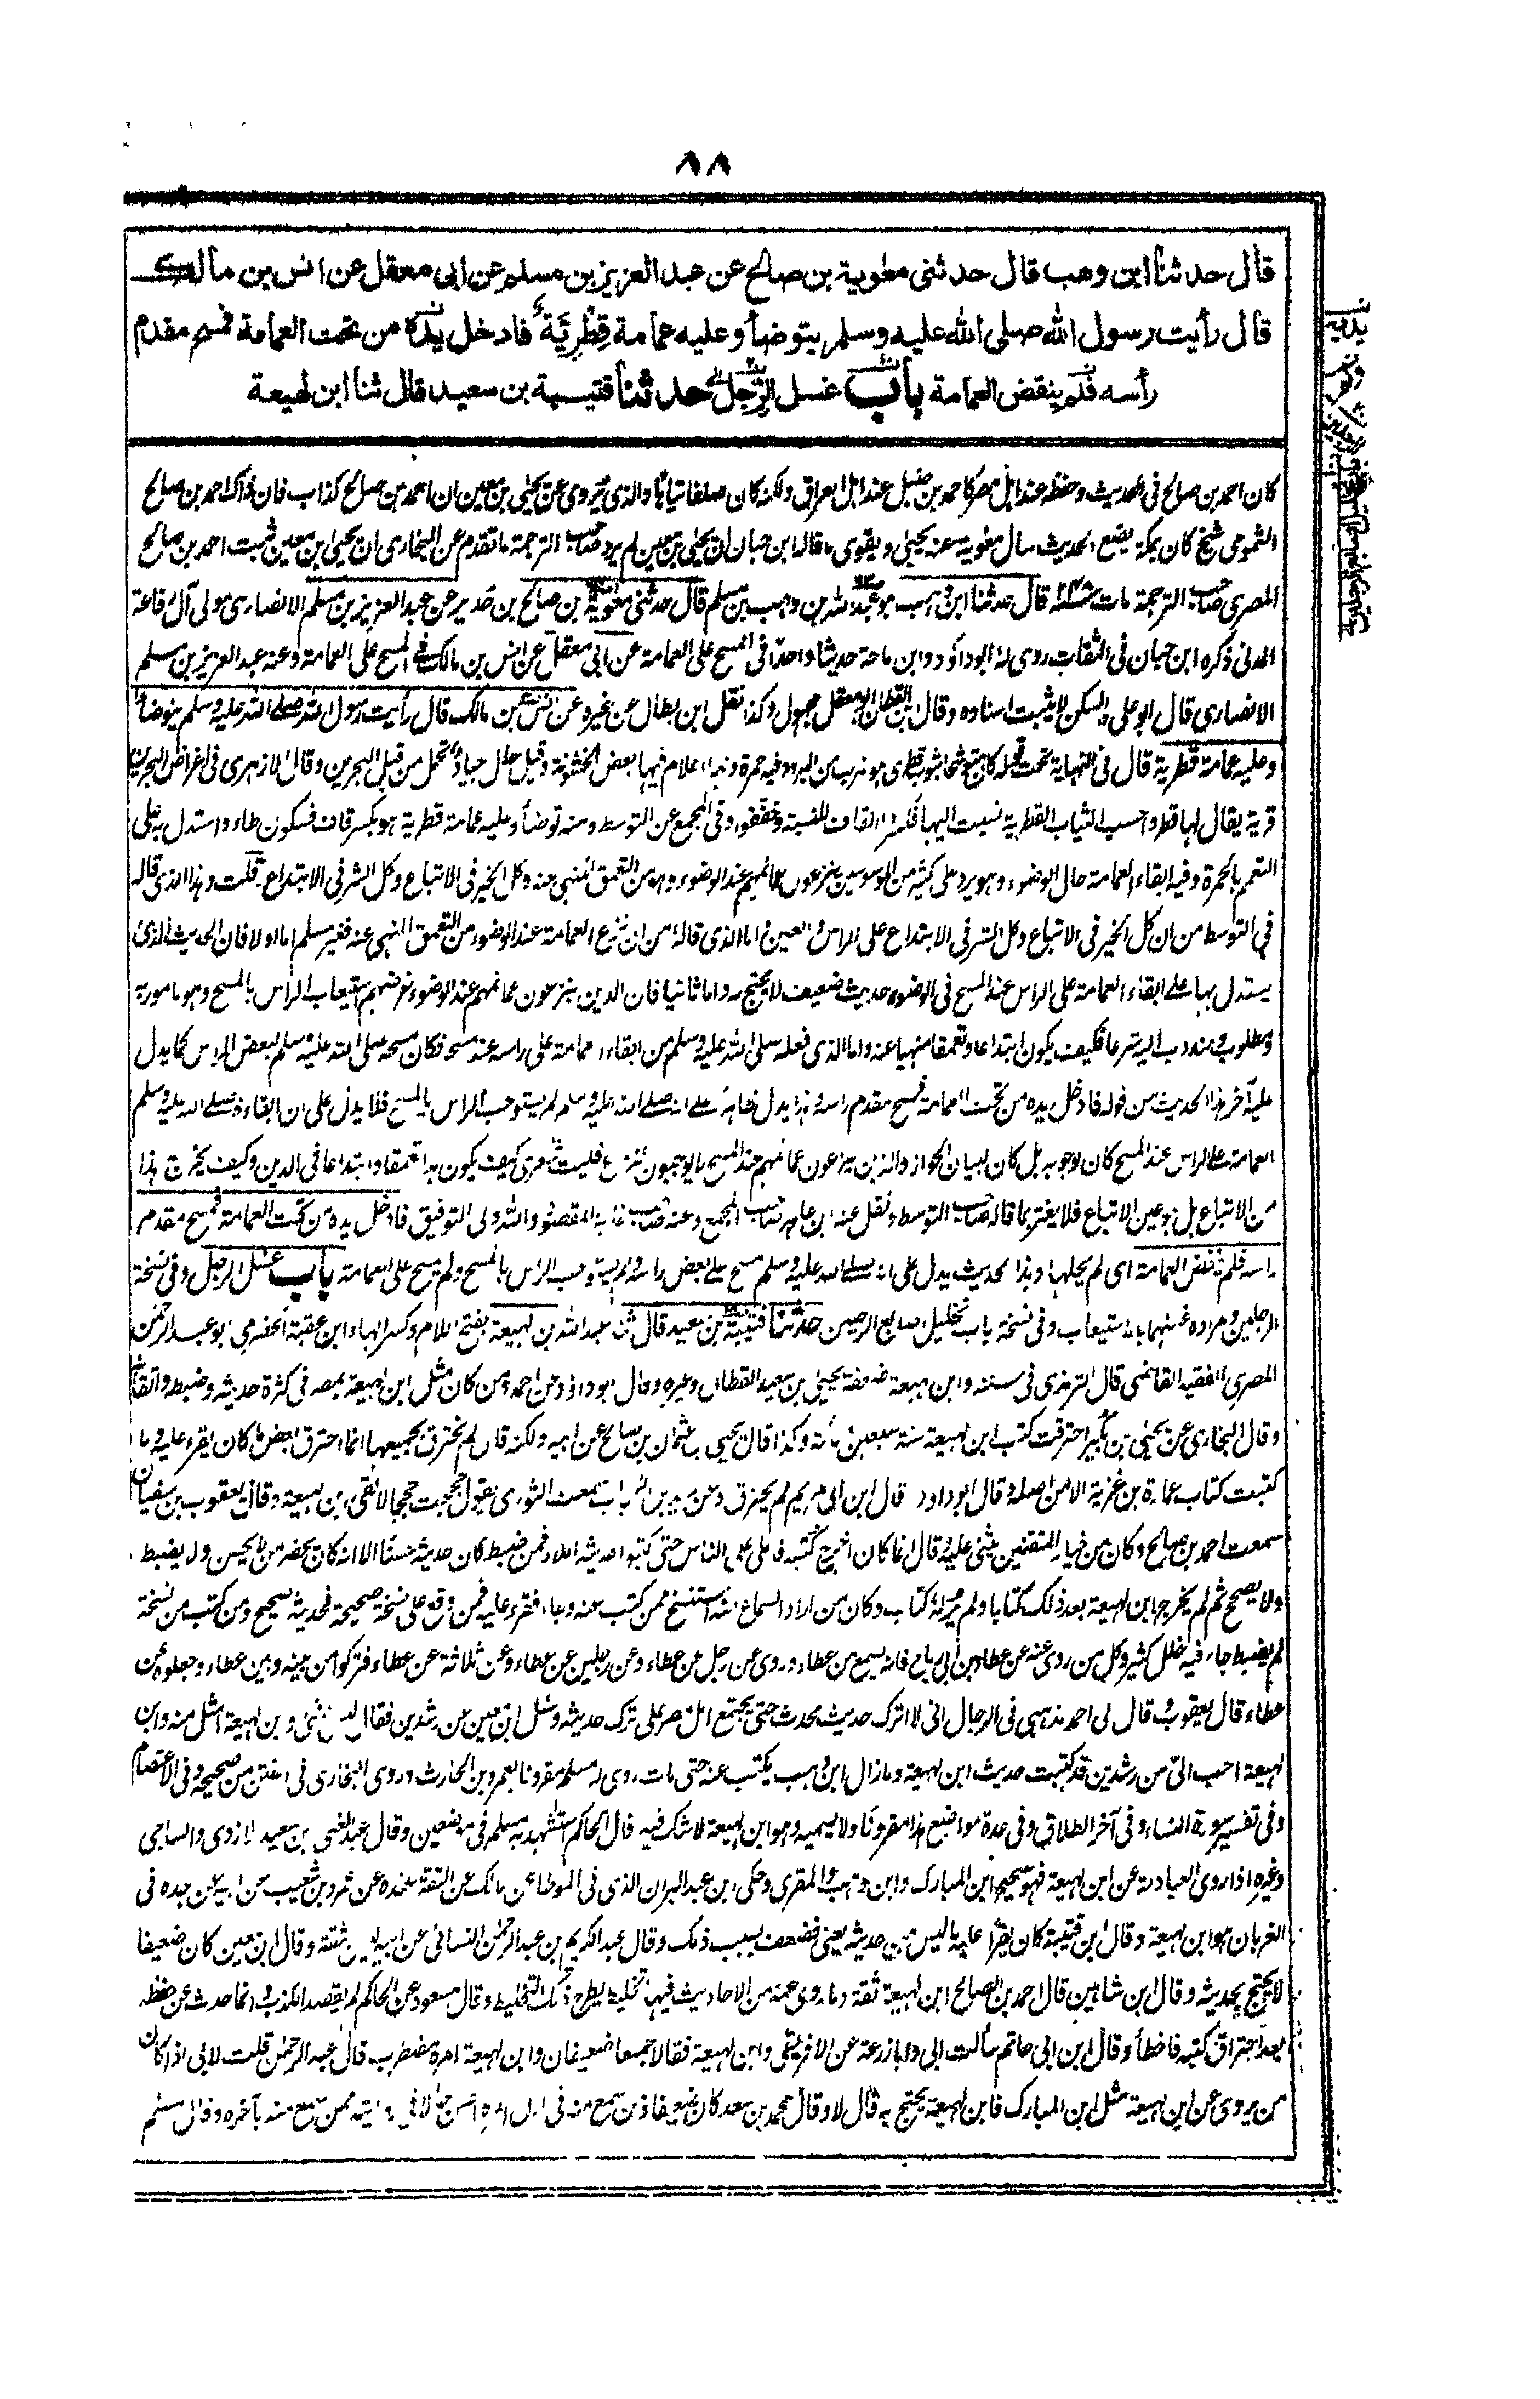 ٨٨
قال حدثنا ابن وهب قال حدثنى معوية بن صالح عن عبد العزيز بن مسلم عن ابى معقل عن انس بن مالك
قال رأيت رسول الله صلى الله عليه وسلم يتوضأ وعليه عمامة قِطْرِيَّة فادخل يده من تحت العمامة فمسح مقدم
رأسه فلم ينقض العمامة باب غسل الرّجل حدثنا قتيبة بن سعيد قال ثنا ابن لهيعة
كان احمد بن صالح فى الحديث وحفظه عند اهل مصر كاحمد بن حنبل عند اهل العراق ولكنه كان صلفا تياها والذى يروى عن يحيى بن معين ان احمد بن صالح كذاب فان ذاك احمد بن صالح
الشمومى شيخ كان بمكة يضع الحديث سال معوية عنه يحيى ويقوى ما قاله ابن حبان ان يحيى بن معين لم يرد صاحب الترجمة ما تقدم عن البخارى ان يحيى بن معين ثبت احمد بن صالح
المصرى صاحب الترجمة مات قال حدثنا ابن وهب هو عبد الله بن وهب بن مسلم قال حدثنى معوية بن صالح بن حدير عن عبد العزيز بن مسلم الانصارى مولى آل رفاعة
المدنى ذكره ابن حبان فى الثقات روى له ابو داؤد وابن ماجة حديثا واحدا فى المسح على العمامة عن ابى معقل عن انس بن مالك فى المسح على العمامة وعنه عبد العزيز بن مسلم
الانصارى قال ابو على بن السكن لا يثبت اسناده وقال ابن القطان ابو معقل مجهول وكذا نقل ابن بطال عن غيره عن انس بن مالك قال رأيت رسول الله صلى الله عليه وسلم يتوضأ
وعليه عمامة قطرية قال فى النهاية هو ضرب من البرود فيه حمرة ولها اعلام فيها بعض الخشونة وقيل حلل جياد تحمل من قبل البحرين وقال الازهرى فى اعراض البحرين
قرية يقال لها قطر واحسب الثياب القطرية نسبت اليها فكسر القاف للنسبة وخففوا وفى المجمع عن التوسط ومنه توضأ وعليه عمامة قطرية هو بكسر قاف فسكون طاء واستدل به على
التعمم بالحمرة وفيه ابقاء العمامة حال الوضوء وهو يرد على كثير من الموسوسين ينزعون عمائمهم عند الوضوء وهو من التعمق المنهى عنه وكل الخير فى الاتباع وكل الشر فى الابتداع قلت وهذا الذى قاله
فى التوسط من ان كل الخير فى الاتباع وكل الشر فى الابتداع على الراس والعين واما الذى قاله من ان نزع العمامة عند الوضوء من التعمق المنهى عنه فغير مسلم اما اولا فان الحديث الذى
يستدل بها على ابقاء العمامة على الراس عند المسح فى الوضوء حديث ضعيف لا يحتج به واما ثانيا فان الذين ينزعون عمائمهم عند الوضوء غرضهم استيعاب الراس بالمسح وهو مامور به
ومطلوب ومندوب اليه شرعا فكيف يكون ابتداعا وتعمقا منهيا عنه واما الذى فعله صلى الله عليه وسلم من ابقاء العمامة على راسه عند مسحه فكان مسحه صلى الله عليه وسلم لبعض الراس كما يدل
عليه آخر هذا الحديث من قوله فادخل يده من تحت العمامة فمسح مقدم راسه وهذا يدل ظاهرا على انه صلى الله عليه وسلم لم يستوعب الراس بالمسح فلا يدل على ان ابقاءه صلى الله عليه وسلم
العمامة على الراس عند المسح كان لوجوبه بل كان لبيان الجواز والذين ينزعون عمائمهم عند المسح ما يوجبون النزع فليت شعرى كيف يكون هذا تعمقا وابتداعا فى الدين وكيف يخرج هذا
من الاتباع بل هو عين الاتباع فلا يغتر بما قاله صاحب التوسط ونقل عنه ابن طاهر صاحب المجمع وعنه صاحب غاية المقصود والله ولى التوفيق فادخل يده من تحت العمامة فمسح مقدم
راسه فلم ينقض العمامة اى لم يحلها وهذا الحديث يدل على انه صلى الله عليه وسلم مسح على بعض راسه ولم يستوعب الراس بالمسح ولم يمسح على العمامة باب غسل الرجل وفى نسخة
الرجلين ومراده غسلهما بالاستيعاب وفى نسخة باب تخليل اصابع الرجلين حدثنا قتيبة بن سعيد قال ثنا عبد الله بن لهيعة بفتح اللام وكسر الهاء ابن عقبة الحضرمى ابو عبد الرحمن
المصرى الفقيه القاضى قال الترمذى فى سننه وابن لهيعة ضعفه يحيى بن سعيد القطان وغيره وقال ابو داؤد عن احمد ومن كان مثل ابن لهيعة بمصر فى كثرة حديثه وضبطه واتقانه
وقال البخارى عن يحيى بن بكير احترقت كتب ابن لهيعة سنة سبعين مأئة وكذا قال يحيى بن عثمان بن صالح عن ابيه ولكنه قال لم تحترق بجميعها انما احترق بعض ما كان يقرء عليه وما
كتبت كتاب عمارة بن غزية الا من اصله وقال ابو داود قال ابن ابى مريم لم يحترق وعن زيد بن الحباب سمعت الثورى يقول حججت حججا لالقى ابن لهيعة وقال يعقوب بن سفيان
سمعت احمد بن صالح وكان من خيار المتقنين يثنى عليه قال انما كان اخرج كتبه فاملى على الناس حتى كتبوا حديثه املاء فمن ضبط كان حديثه حسنا الا انه كان يحضر من لا يحسن ولا يضبط
ولا يصحح ثم لم يخرج ابن لهيعة بعد ذلك كتابا ولم ير له كتاب وكان من اراد السماع منه استنسخ ممن كتب عنه وجاء فقرء عليه فمن وقع على نسخة صحيحة فحديثه صحيح ومن كتب من نسخة
لم يضبط جاء فيه خلل كثير وكل من روى عنه عن عطاء بن ابى رباح فانه سمع من عطاء وروى عن رجل عن عطاء وعن رجلين عن عطاء وعن ثلاثة عن عطاء فتركوا من بينه وبين عطاء وجعلوه عن
عطاء قال يعقوب وقال لى احمد مذهبى فى الرجال انى لا اترك حديث محدث حتى يجتمع اهل مصر على ترك حديثه وسئل ابن معين عن رشدين فقال ليس بشئ وابن لهيعة امثل منه وابن
لهيعة احب الىّ من رشدين قد كتبت حديث ابن لهيعة وما زال ابن وهب يكتب عنه حتى مات روى له مسلم مقرونا بعمرو بن الحارث وروى البخارى فى الفتن من صحيحه وفى الاعتصام
وفى تفسير سورة النساء وفى آخر الطلاق وفى عدة مواضع هذا مقرونا ولا يسميه وهو ابن لهيعة لا شك فيه قال الحاكم استشهد به مسلم فى موضعين وقال عبد الغنى بن سعيد الازدى والساجى
وغيره اذا روى العبادلة عن ابن لهيعة فهو صحيح ابن المبارك وابن وهب والمقرى وحكى ابن عبد البر ان الذى فى الموطا عن مالك عن الثقة عنده عن عمرو بن شعيب عن ابيه عن جده فى
العربان هو ابن لهيعة وقال ابن قتيبة كان يقرأ عليه ما ليس من حديثه يعنى فضعف بسبب ذلك وقال عبد الكريم بن عبد الرحمن النسائى عن ابيه ليس بثقة وقال ابن معين كان ضعيفا
لا يحتج بحديثه وقال ابن شاهين قال احمد بن الصالح ابن لهيعة ثقة وما روى عنه من الاحاديث فيها تخليط يطرح ذلك التخليط وقال مسعود عن الحاكم لم يقصد الكذب وانما حدث عن حفظه
بعد احتراق كتبه فاخطأ وقال ابن ابى حاتم سألت ابى وابا زرعة عن الافريقى وابن لهيعة فقالا جميعا ضعيفان وابن لهيعة امره مضطرب قال عبد الرحمن قلت لابى اذا كان
من يروى عن ابن لهيعة مثل ابن المبارك فابن لهيعة يحتج به قال لا وقال محمد بن سعد كان ضعيفا ومن سمع منه فى اول امره احسن حالا فى روايته ممن سمع منه بآخره وقال مسلم